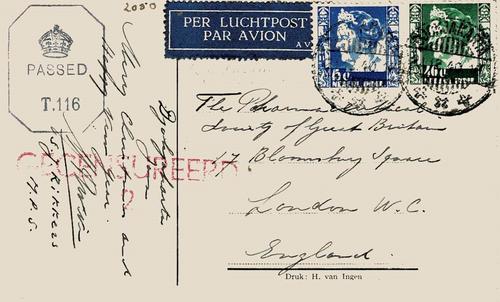 2050
PASSED
T.116
PER LUCHTPOST
PAR AVION
Merry Christmas and
Happy New Year.
Djokjakarta
Java
GECENSUREERD
2
M.P.S.
The Pharmaceutical
Society of Great Britain
17 Bloomsbury Square
London W.C.
England.
Druk: H. van Ingen